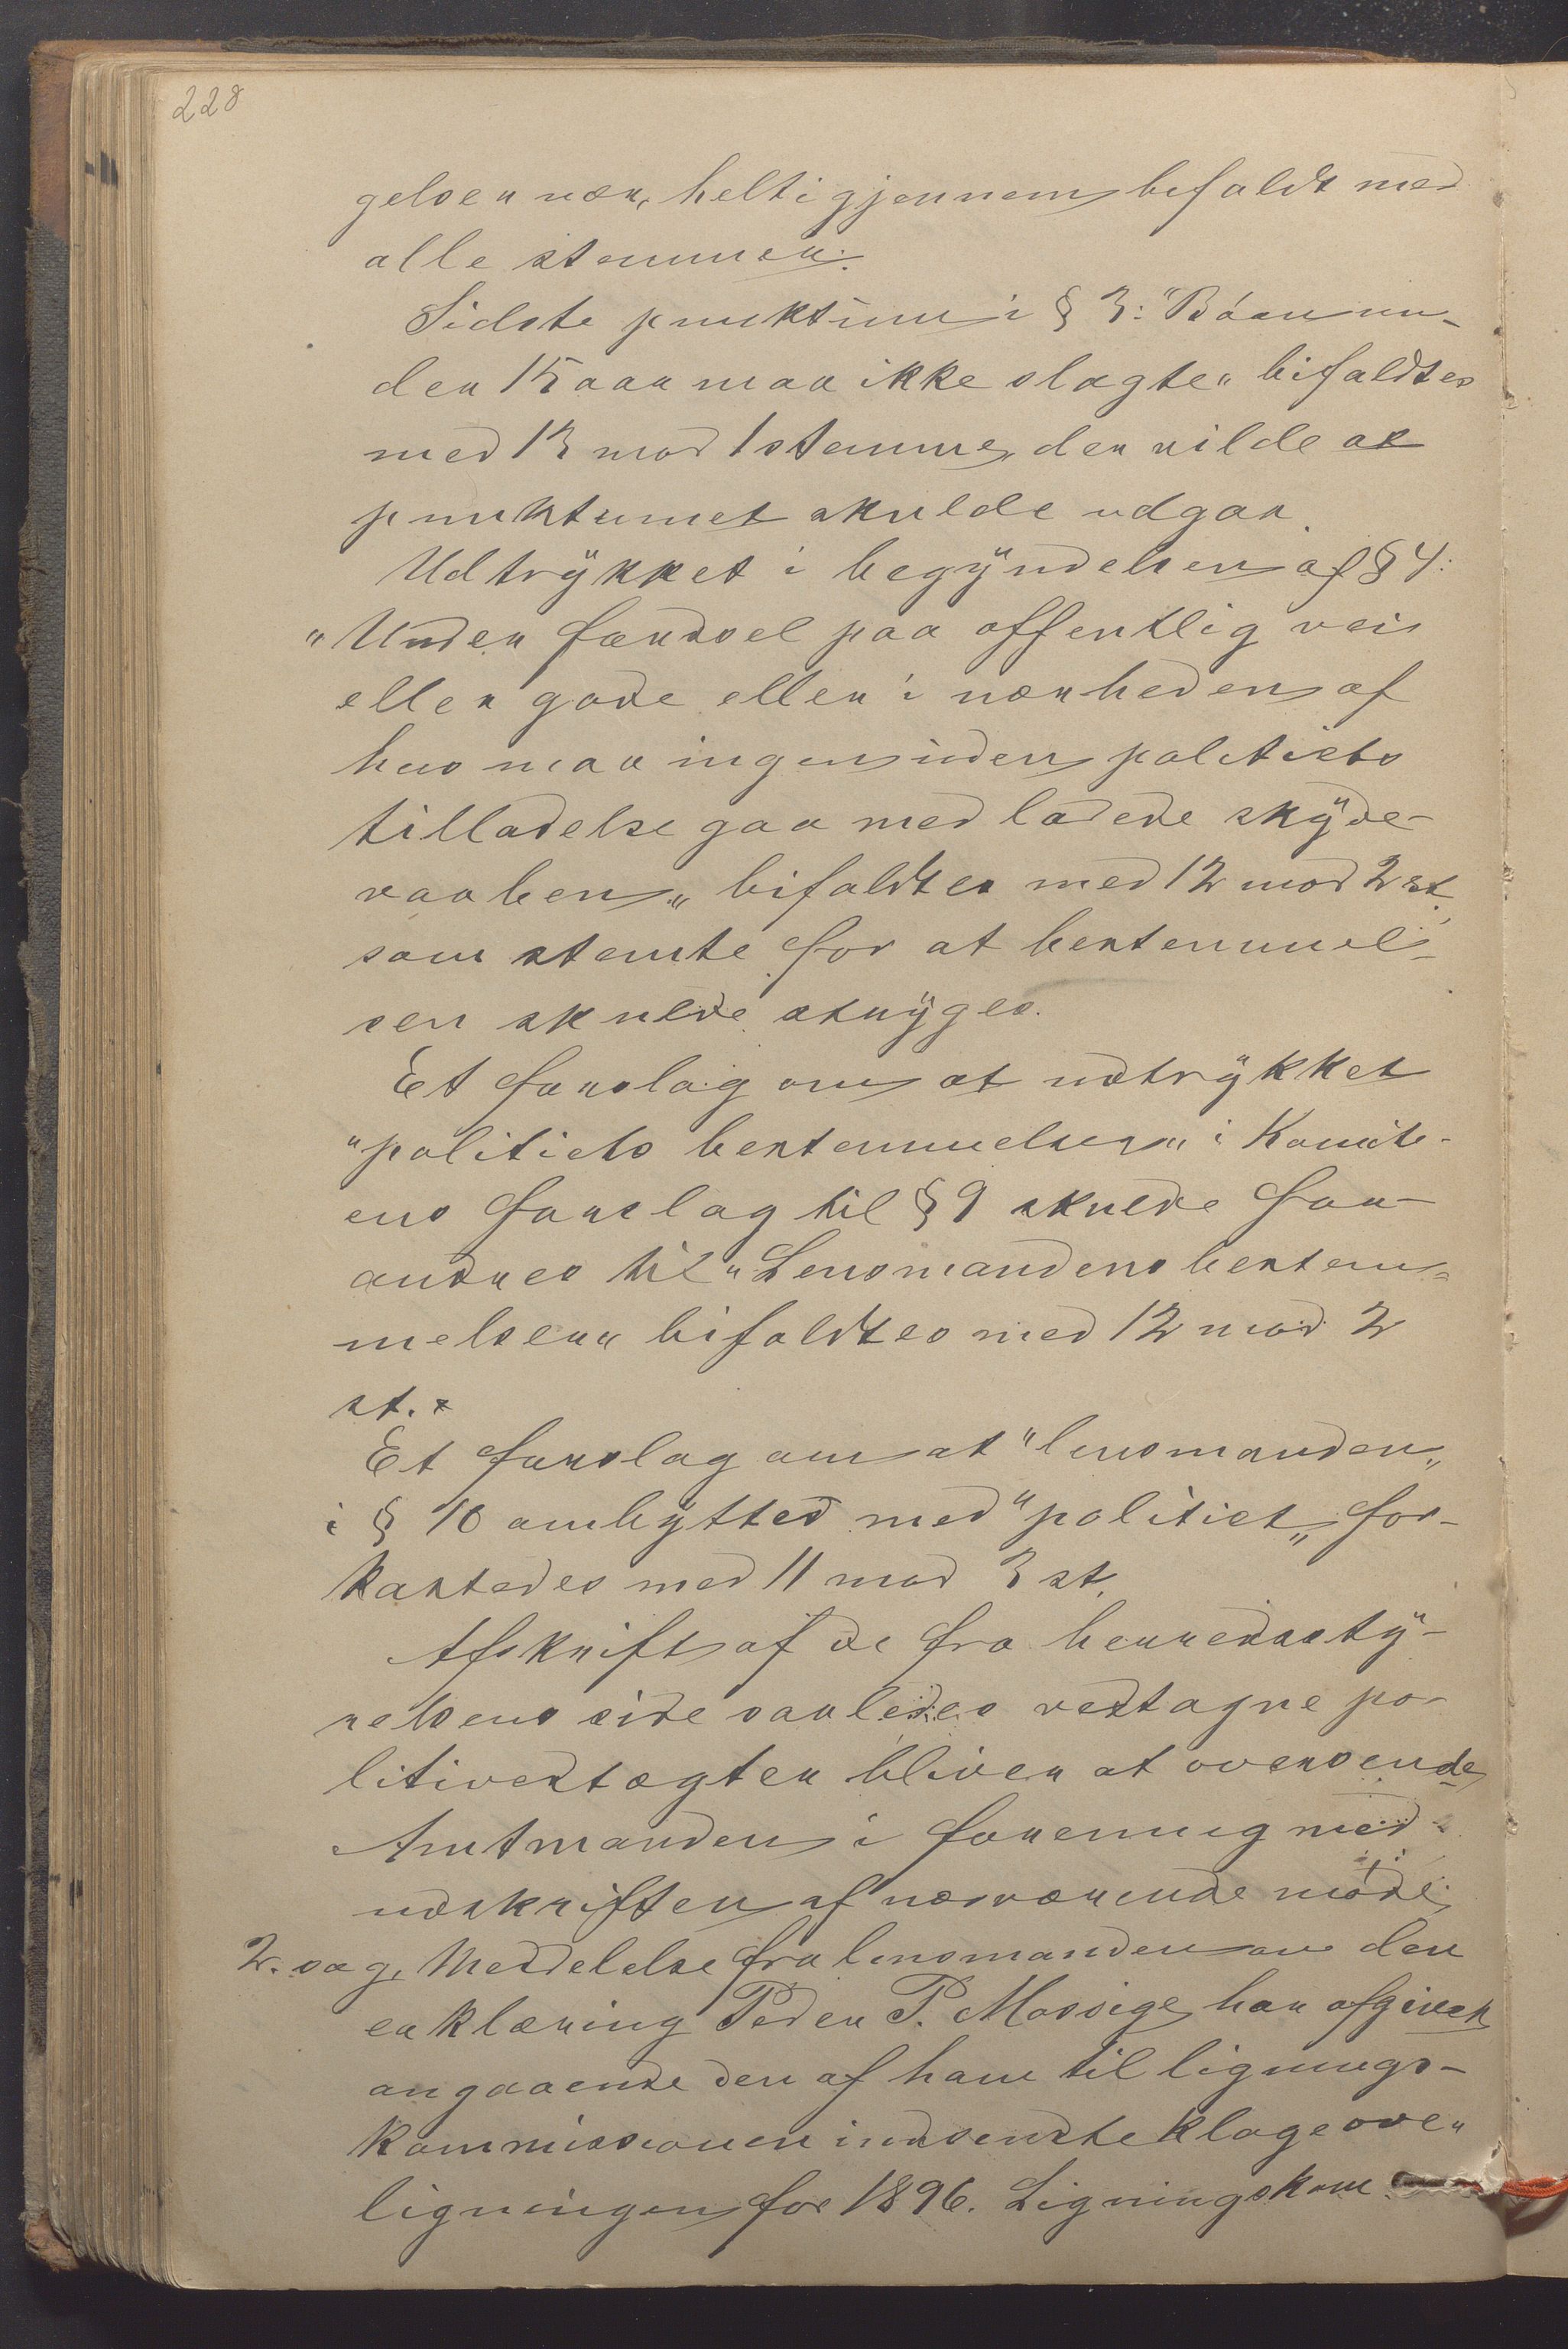 228
gelser var, helt igjennem bifaldt med
alle stemmer.
Sidste punktum i § 3: "Børn un-
der 15 aar maa ikke slagte" bifaldtes
med 13 mod 1 stemme, der vilde at
punktumet skulde udgaa.
Udtrykket i begyndelsen af § 4:
"Under færdsel paa offentlig vei
eller gade eller i nærheden af
hus maa ingen uden politiets
tilladelse gaa med ladede skyde-
vaaben" bifaldtes med 12 mod 2 st.,
som stemte for at bestemmel-
sen skulde stryges.
Et forslag om at udtrykket
"politiets bestemmelser" i Komite-
ens forslag til § 9 skulde for-
andres til "Lensmandens bestem-
melser" bifaldtes med 12 mod 2
st.
Et forslag om at "lensmanden"
i § 10 ombytted med "politiet" for-
kastedes med 11 mod 3 st.
Afskrift af de fra herredssty-
relsens side saaledes vedtagne po-
litivedtægter bliver at oversende
Amtmanden i forening med
udskriften af nærværende møde.
2. sag. Meddelelse fra lensmanden om den
erklæring Peder P. Mossige har afgivet
angaaende den af ham til lignings-
kommissionen indsendte klage over
ligningen for 1896. Ligningskom